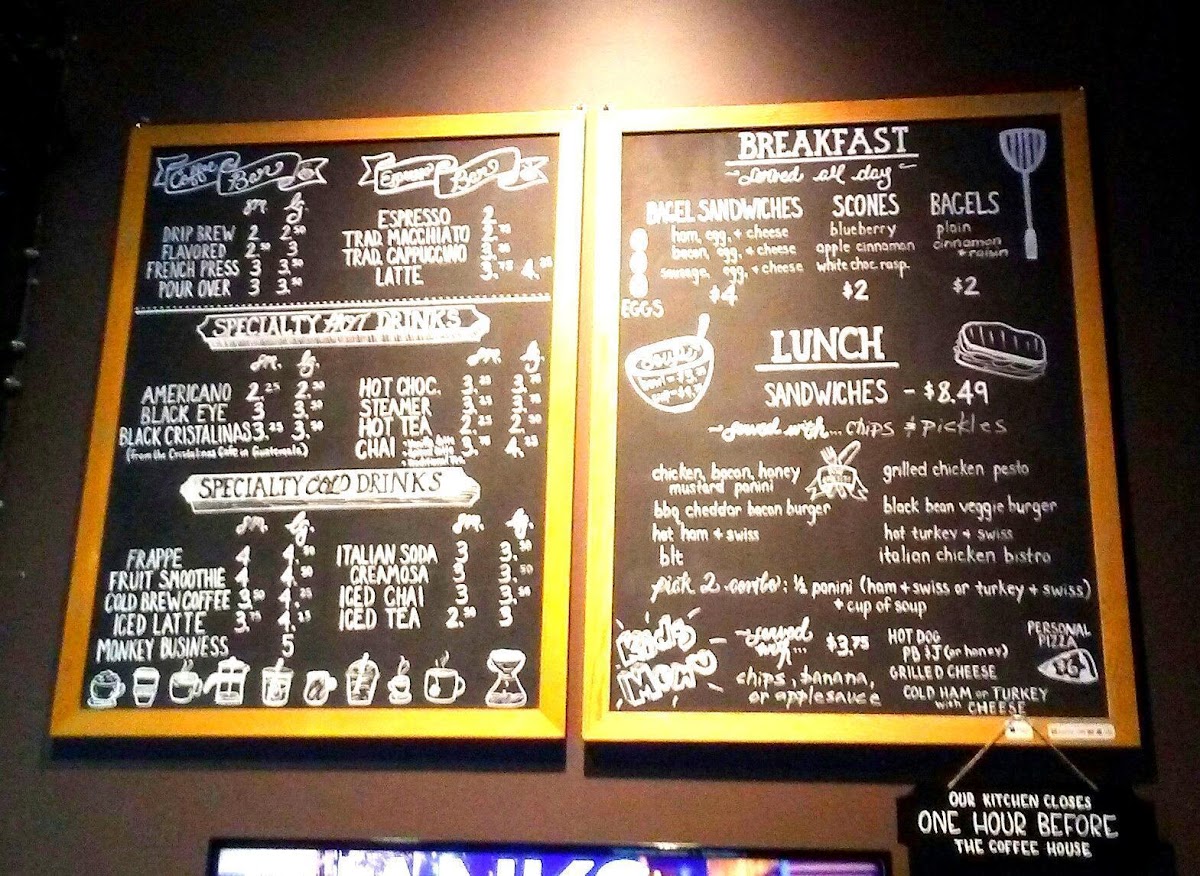 Coffee Bar
sm. lg.
DRIP BREW 2 2.50
FLAVORED 2.50 3
FRENCH PRESS 3 3.50
POUR OVER 3 3.50
Espresso Bar
ESPRESSO 2
TRAD. MACCHIATO
TRAD. CAPPUCCINO
LATTE 3.75 4.25
SPECIALTY HOT DRINKS
sm. lg.
AMERICANO 2.25 2.50
BLACK EYE 3 3.50
BLACK CRISTALINAS 3.25 3.50
(from the Cristalinas Cafe in Guatemala)
sm. lg.
HOT CHOC.
STEAMER
HOT TEA
CHAI 4.25
SPECIALTY COLD DRINKS
sm. lg.
FRAPPE 4 4.50
FRUIT SMOOTHIE 4 4.50
COLD BREW COFFEE 3.50 4.25
ICED LATTE 3.75 4.25
MONKEY BUSINESS 5
sm. lg.
ITALIAN SODA 3 3.50
CREAMOSA 3 3.50
ICED CHAI 3 3.50
ICED TEA 2.50 3
BREAKFAST
served all day
BAGEL SANDWICHES
ham, egg, + cheese
bacon, egg, + cheese
sausage, egg, + cheese
$4
EGGS
SCONES
blueberry
apple cinnamon
white choc. rasp.
$2
BAGELS
plain
cinnamon
+ raisin
$2
LUNCH
SANDWICHES - $8.49
served with... chips & pickles
chicken, bacon, honey
mustard panini
bbq cheddar bacon burger
hot ham + swiss
blt
grilled chicken pesto
black bean veggie burger
hot turkey + swiss
italian chicken bistro
pick 2 combo: ½ panini (ham + swiss or turkey + swiss)
+ cup of soup
Kids
Menu
served
w/... $3.75
chips, banana,
or applesauce
HOT DOG
PB & J (or honey)
GRILLED CHEESE
COLD HAM or TURKEY
with CHEESE
PERSONAL
PIZZA
$6
OUR KITCHEN CLOSES
ONE HOUR BEFORE
THE COFFEE HOUSE